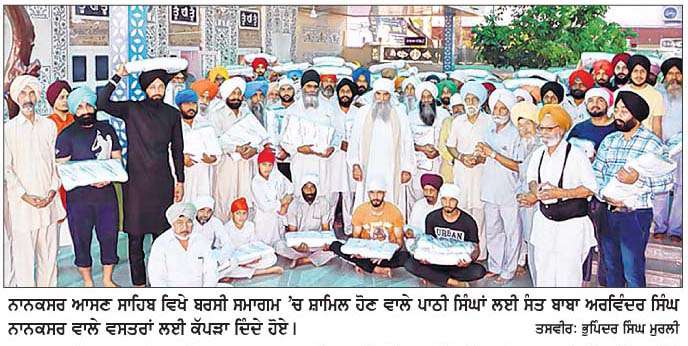 ਨਾਨਕਸਰ ਆਸਣ ਸਾਹਿਬ ਵਿਖੇ ਬਰਸੀ ਸਮਾਗਮ ’ਚ ਸ਼ਾਮਿਲ ਹੋਣ ਵਾਲੇ ਪਾਠੀ ਸਿੰਘਾਂ ਲਈ ਸੰਤ ਬਾਬਾ ਅਰਵਿੰਦਰ ਸਿੰਘ
ਨਾਨਕਸਰ ਵਾਲੇ ਵਸਤਰਾਂ ਲਈ ਕੱਪੜਾ ਦਿੰਦੇ ਹੋਏ। ਤਸਵੀਰ: ਭੁਪਿੰਦਰ ਸਿੰਘ ਮੁਰਲੀ
URBAN